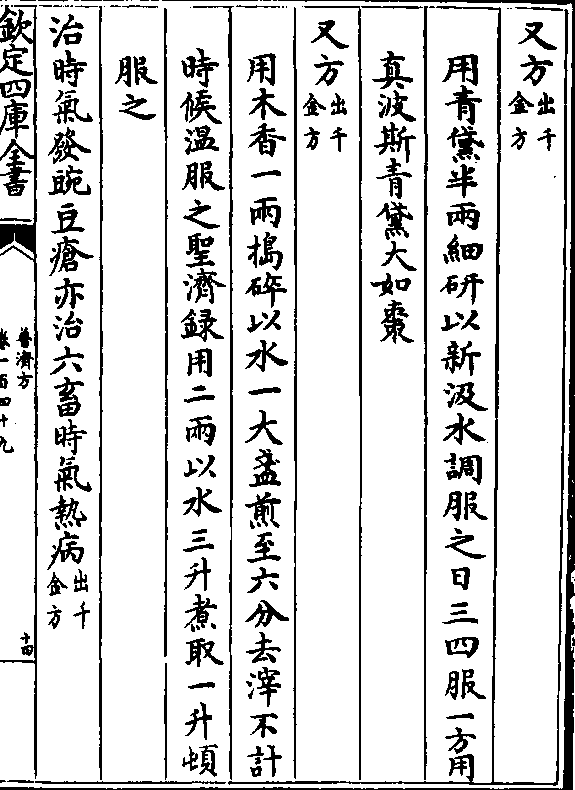 又方出千金方
用青黛半兩細研以新汲水調服之日三四服一方用
真波斯青黛大如棗
又方出千金方
用木香一兩搗碎以水一大盞煎至六分去滓不計
時候温服之聖濟録用二兩以水三升煮取一升頓
服之
治時氣發豌豆瘡亦治六畜時氣熱病出千金方
欽定四庫全書
普濟方
卷一百四十九
十四